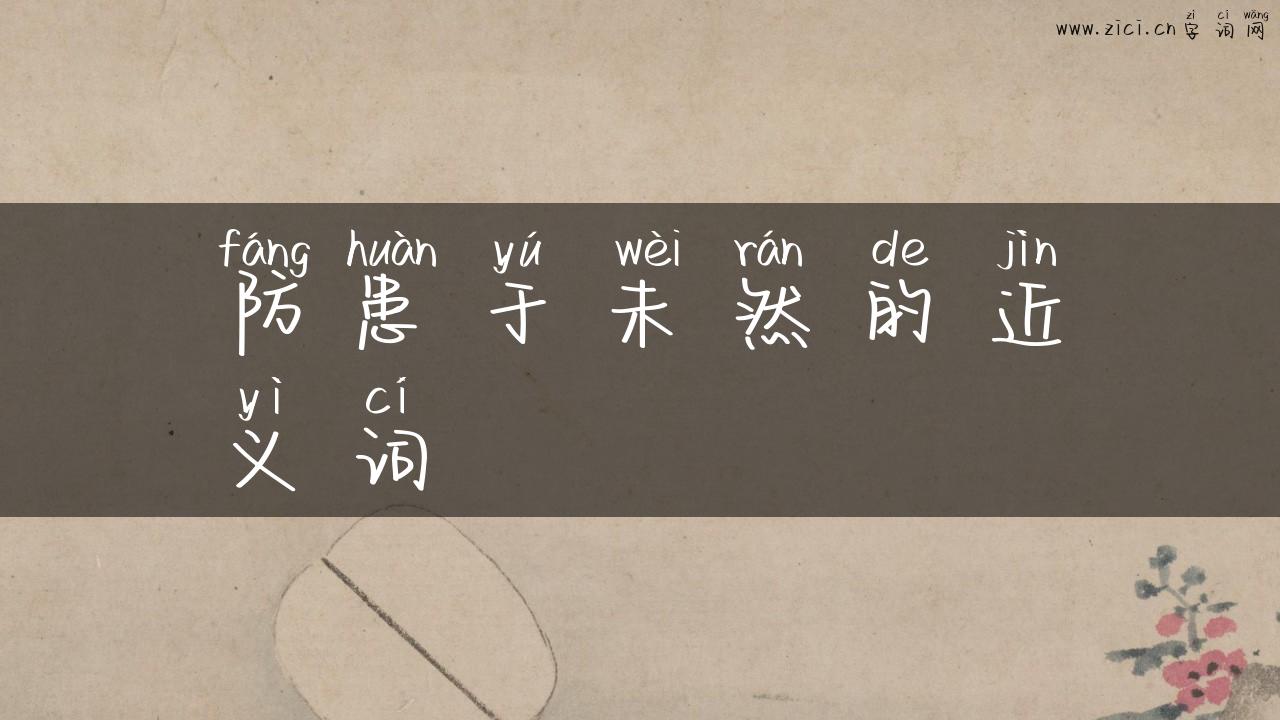 zì cí wǎng
www.zici.cn 字词网
fáng huàn yú wèi rán de jìn
防患于未然的近
yì cí
义词